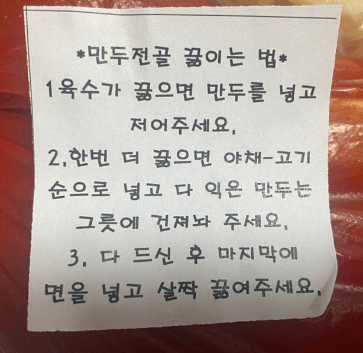 *만두전골 끓이는 법*
1육수가 끓으면 만두를 넣고
저어주세요.
2.한번 더 끓으면 야채-고기
순으로 넣고 다 익은 만두는
그릇에 건져놔 주세요.
3. 다 드신 후 마지막에
면을 넣고 살짝 끓여주세요.